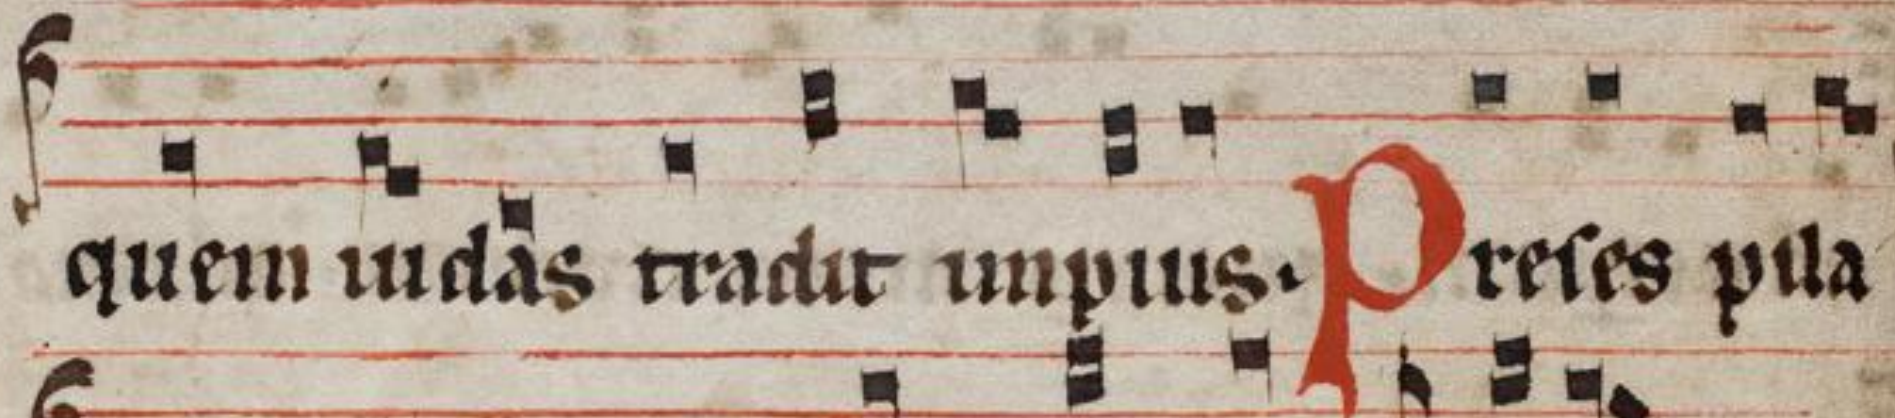 quem iudas tradit impius. Preses pila